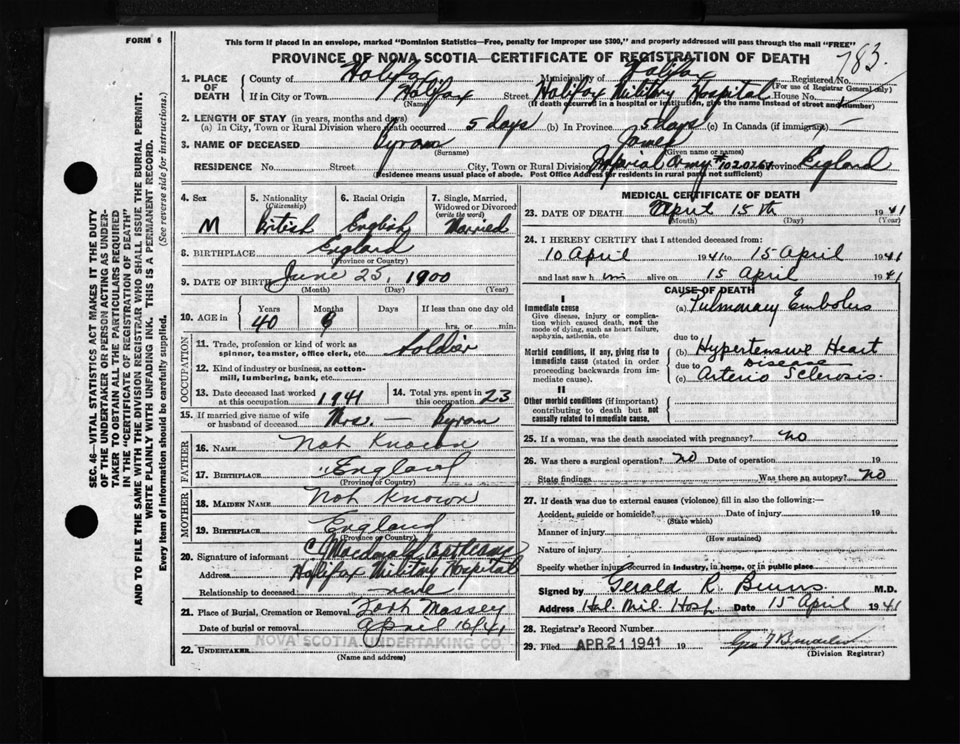 FORM 6
This form if placed in an envelope, marked "Dominion Statistics—Free, penalty for improper use $300," and properly addressed will pass through the mail "FREE"
PROVINCE OF NOVA SCOTIA—CERTIFICATE OF REGISTRATION OF DEATH
783.
1. PLACE OF DEATH
County of Halifax Municipality of Halifax Registered No.
(For use of Registrar General only)
If in City or Town Halifax Street Halifax Military Hospital House No.
(Name) (If death occurred in a hospital or institution, give the name instead of street and number)
2. LENGTH OF STAY (in years, months and days)
(a) In City, Town or Rural Division where death occurred 5 days (b) In Province 5 days (c) In Canada (if immigrant) —
3. NAME OF DECEASED Byram James
(Surname) (Given name or names)
RESIDENCE No. Street City, Town or Rural Division Imperial Army # 1020261 Province England
(Residence means usual place of abode. Post Office Address for residents in rural parts not sufficient)
4. Sex
M
5. Nationality
(Citizenship)
British
6. Racial Origin
English
7. Single, Married, Widowed or Divorced
(write the word)
Married
8. BIRTHPLACE England
(Province or Country)
9. DATE OF BIRTH June 25, 1900
(Month) (Day) (Year)
10. AGE in Years Months Days If less than one day old
40 hrs. or min.
OCCUPATION
11. Trade, profession or kind of work as spinner, teamster, office clerk, etc. Soldier
12. Kind of industry or business, as cotton-mill, lumbering, bank, etc.
13. Date deceased last worked at this occupation 1941
14. Total yrs. spent in this occupation 23
15. If married give name of wife or husband of deceased Mrs. — Byram
FATHER
16. NAME Not Known
17. BIRTHPLACE "England
(Province or Country)
MOTHER
18. MAIDEN NAME Not Known
19. BIRTHPLACE England
(Province or Country)
20. Signature of informant
Address Halifax Military Hospital
Relationship to deceased none
21. Place of Burial, Cremation or Removal Fort Massey
Date of burial or removal April 16/41
22. UNDERTAKER NOVA SCOTIA UNDERTAKING CO.
(Name and address)
MEDICAL CERTIFICATE OF DEATH
23. DATE OF DEATH April 15th 1941
(Month) (Day) (Year)
24. I HEREBY CERTIFY that I attended deceased from:
10 April 1941 to 15 April 1941
and last saw him alive on 15 April 1941
CAUSE OF DEATH
I
Immediate cause (a) Pulmonary Embolus
Give disease, injury or complication which caused death, not the mode of dying, such as heart failure, asphyxia, asthenia, etc
due to
Morbid conditions, if any, giving rise to immediate cause (stated in order proceeding backwards from immediate cause).
(b) Hypertensive Heart Disease
due to
(c) Arterio Sclerosis.
II
Other morbid conditions (if important) contributing to death but not causally related to immediate cause.
25. If a woman, was the death associated with pregnancy? no
26. Was there a surgical operation? no Date of operation 19
State findings Was there an autopsy? no
27. If death was due to external causes (violence) fill in also the following:—
Accident, suicide or homicide? Date of injury 19
(State which)
Manner of injury
(How sustained)
Nature of injury
Specify whether injury occurred in industry, in home, or in public place
Signed by Gerald R. Burns M.D.
Address Hal. Mil. Hosp. Date 15 April 1941
28. Registrar's Record Number
29. Filed APR 21 1941 19
(Division Registrar)
SEC. 46—VITAL STATISTICS ACT MAKES IT THE DUTY OF THE UNDERTAKER OR PERSON ACTING AS UNDERTAKER TO OBTAIN ALL THE PARTICULARS REQUIRED IN THE "CERTIFICATE OF REGISTRATION OF DEATH" AND TO FILE THE SAME WITH THE DIVISION REGISTRAR WHO SHALL ISSUE THE BURIAL PERMIT.
WRITE PLAINLY WITH UNFADING INK. THIS IS A PERMANENT RECORD.
Every item of information should be carefully supplied. (See reverse side for instructions.)